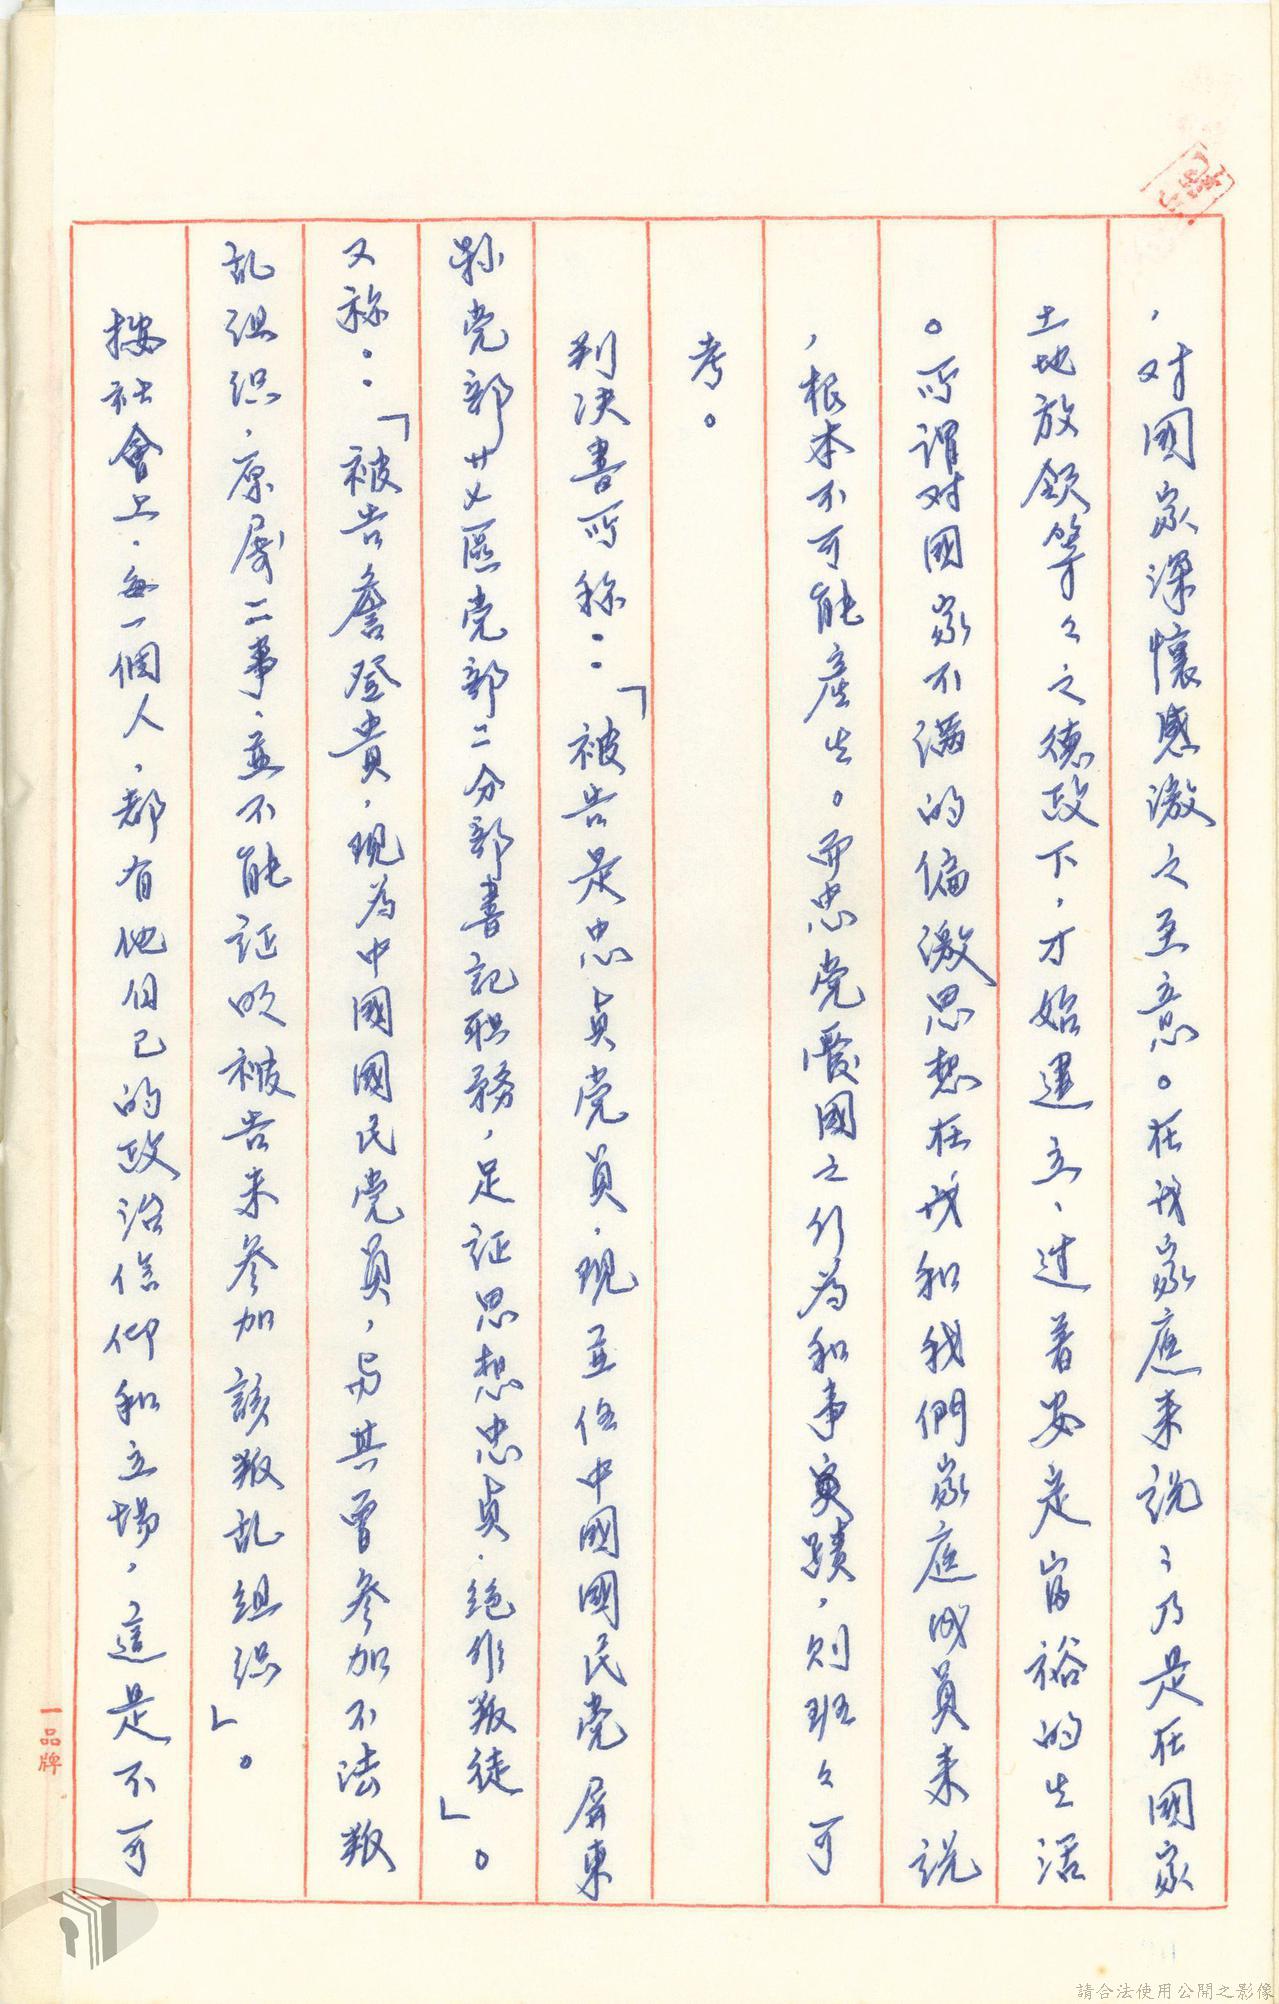 ，对國家深懷感激之至意。在我家庭来説，乃是在國家
土地放領等々之德政下，才始建立，过著安定富裕的生活
。所谓对國家不滿的偏激思想在我和我們家庭成員来説
，根本不可能產生。而忠党愛國之行為和事実蹟，则班々可
考。
判决書所称：「被告是忠贞党員，現並任中國國民党屏東
縣党部廿乂區党部二分部書記职務，足証思想忠贞，绝非叛徒」。
又称：「被告詹登貴，現為中國國民党員，与其曾參加不法叛
乱组织，原属二事，並不能証明被告未參加該叛乱组织」。
按社會上，每一個人，都有他自己的政治信仰和立場，這是不可
一品牌
請合法使用公開之影像